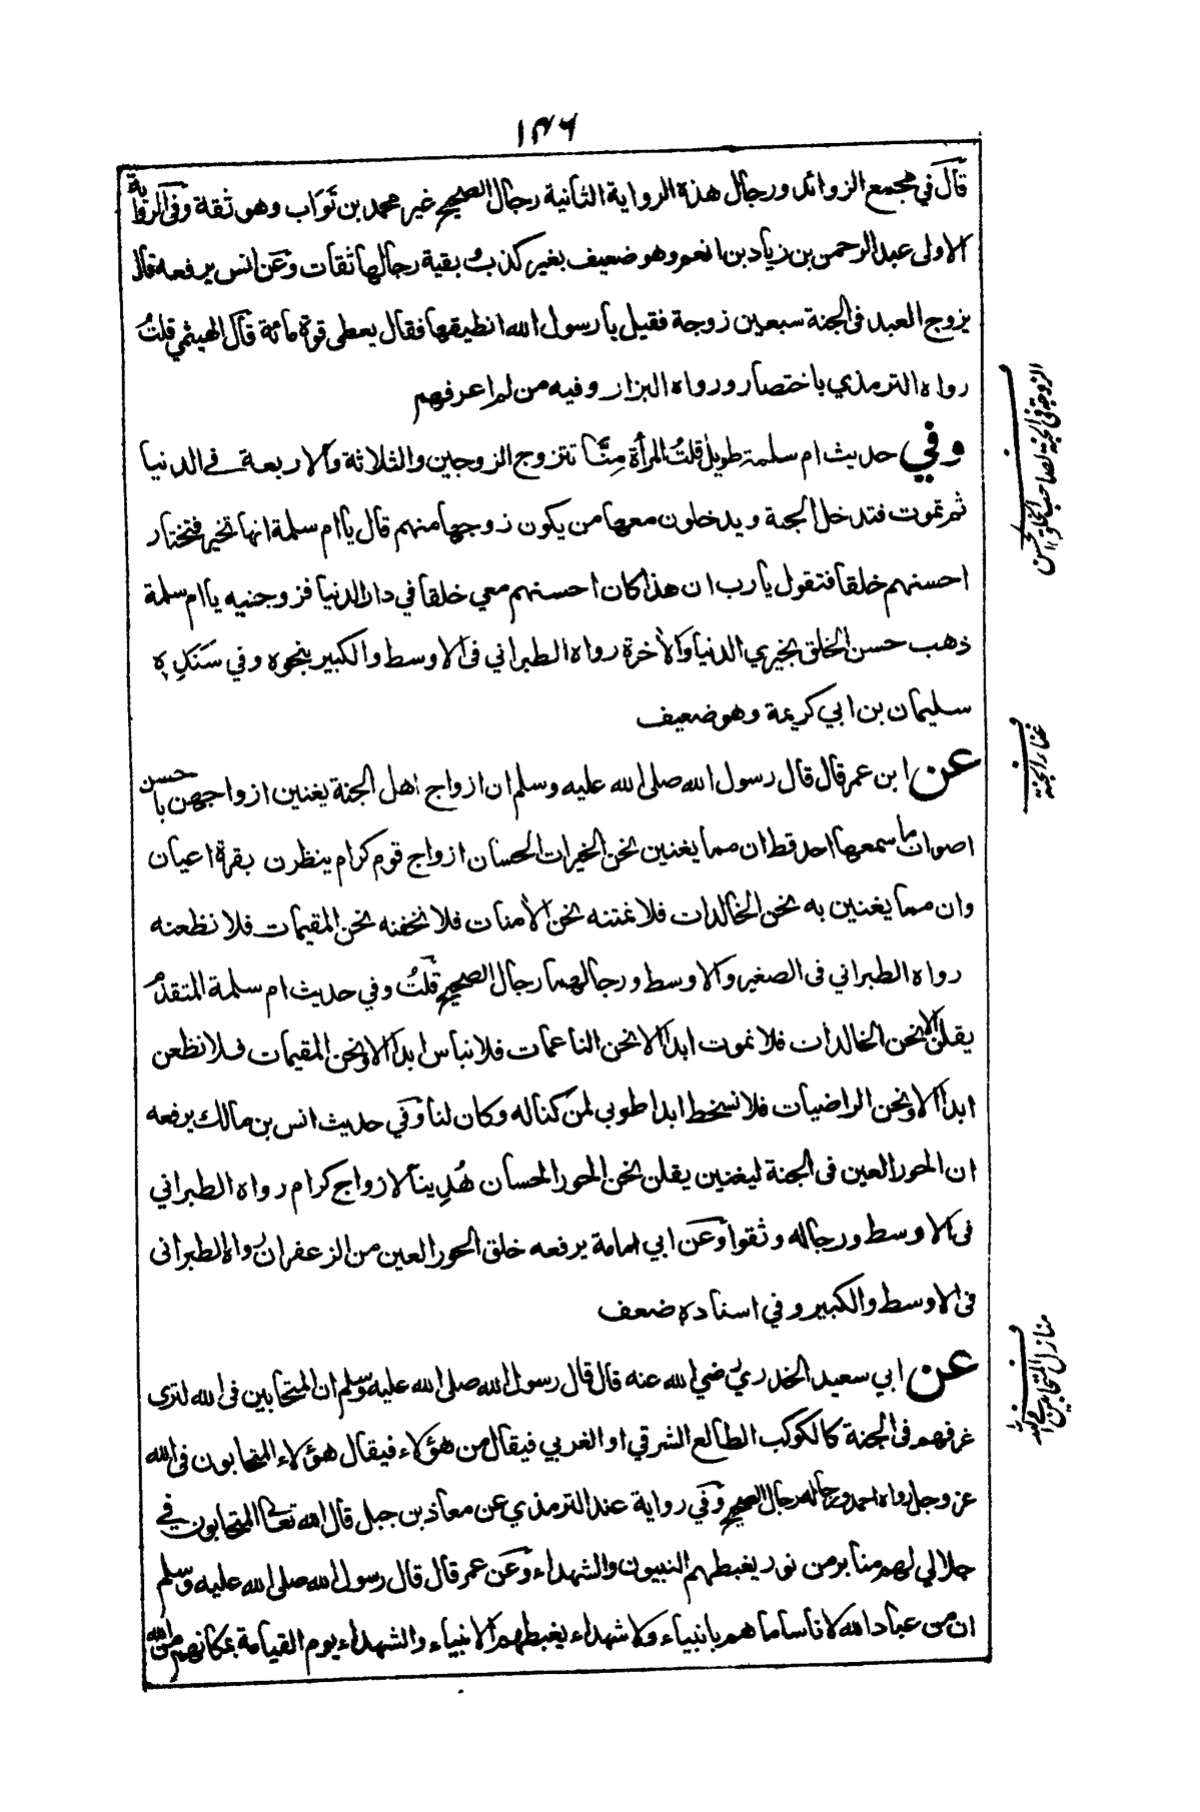 ١٣٦
قال في مجمع الزوائد ورجال هذه الرواية الثانية رجال الصحيح غير محمد بن ثواب وهو ثقة وفي الرواية
الاولى عبد الرحمن بن زياد بن انعم وهو ضعيف بغير كذب وبقية رجالها ثقات وعن انس يرفعه قال
يزوج العبد فى الجنة سبعين زوجة فقيل يا رسول الله انطيقها فقال يعطى قوة مائة قال الهيثمي قلتُ
رواه الترمذي باختصار ورواه البزار وفيه من لم اعرفهم
وفي حديث ام سلمة طويل قلتُ المرأة مِنَّا تتزوج الزوجين والثلاثة والاربعة في الدنيا
ثم تموت فتدخل الجنة ويدخلون معها من يكون زوجها منهم قال يا ام سلمة انها تخير فتختار
احسنهم خلقا فتقول يا رب ان هذا كان احسنهم معي خلقا في دار الدنيا فزوجنيه يا ام سلمة
ذهب حسن الخلق بخيري الدنيا والأخرة رواه الطبراني فى الاوسط والكبير بنحوه وفي سندِه
سليمان بن ابي كريمة وهو ضعيف
عن ابن عمر قال قال رسول الله صلى الله عليه وسلم ان ازواج اهل الجنة يغنين ازواجهن باحسن
اصوات ما سمعها احد قط ان مما يغنين نحن الخيرات الحسان ازواج قوم كرام ينظرن بقرة اعيان
وان مما يغنين به نحن الخالدات فلا نمتنه نحن الأمنات فلا نخفنه نحن المقيمات فلا نظعنه
رواه الطبراني فى الصغير والاوسط ورجالهما رجال الصحيح قلتُ وفي حديث ام سلمة المتقدم
يقلن الا نحن الخالدات فلا نموت ابدا الا نحن الناعمات فلا نباس ابدا الا ونحن المقيمات فلا نظعن
ابدا الا ونحن الراضيات فلا نسخط ابدا طوبى لمن كنا له وكان لنا وفي حديث انس بن مالك يرفعه
ان الحور العين فى الجنة ليغنين يقلن نحن الحور الحسان هُدِينا لازواج كرام رواه الطبراني
فى الاوسط ورجاله وثقوا وعن ابي امامة يرفعه خلق الحور العين من الزعفران رواه الطبرانى
فى الاوسط والكبير وفي اسناده ضعف
عن ابي سعيد الخدري رضي الله عنه قال قال رسول الله صلى الله عليه وسلم ان المتحابين فى الله لترى
غرفهم فى الجنة كالكوكب الطالع الشرقي او الغربي فيقال من هؤلاء فيقال هؤلاء المتحابون فى الله
عز وجل رواه احمد ورجاله رجال الصحيح وفي رواية عند الترمذي عن معاذ بن جبل قال الله تعالى المتحابون في
جلالي لهم منابر من نور يغبطهم النبيون والشهداء وعن عمر قال قال رسول الله صلى الله عليه وسلم
ان من عباد الله لاناسا ما هم بانبياء ولا شهداء يغبطهم الانبياء والشهداء يوم القيامة بمكانهم من الله
الزوجة في الجنة لصاحب الخلق الحسن
غناء الجنة
منازل المتحابين في الله